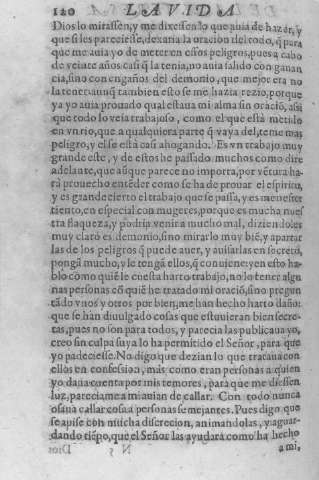 120 LA VIDA
Dios lo mirassen, y me dixessen lo que auia de hazer, y
que si les pareciesse, dexaria la oracion del todo, q̃ para
que me auia yo de meter en essos peligros, pues a cabo
de veinte años casi q̃ la tenia, no auia salido con ganan
cia, sino con engaños del demonio, que mejor era no
la tener aunq̃ tambien esto se me hazia rezio, porque
ya yo auia prouado qual estaua mi alma sin oraciõ, assi
que todo lo veia trabajoso, como el que està metido
en vn rio, que a qualquiera parte q̃ vaya del, teme mas
peligro, y el se està casi ahogando. Es vn trabajo muy
grande este, y destos he passado muchos como dire
adelante, que aũque parece no importa, por vẽtura ha
rà prouecho entẽder como se ha de prouar el espiritu,
y es grande cierto el trabajo que se passa, y es menester
tiento, en especial con mugeres, porque es mucha nues
tra flaqueza, y podria venir a mucho mal, diziendoles
muy claro es demonio, sino mirarlo muy biẽ, y apartar
las de los peligros q̃ puede auer, y auisarlas en secreto
pongã mucho, y le tengã ellos, q̃ conuiene: y en esto ha
blo como quiẽ le cuesta harto trabajo, no lo tener algu
nas personas cõ quiẽ he tratado mi oraciõ, sino pregun
tãdo vnos y otros por bien, me han hecho harto daño:
que se hàn diuulgado cosas que estuuieran bien secre
tas, pues no son para todos, y parecia las publicaua yo,
creo sin culpa suya lo ha permitido el Señor, para que
yo padeciesse. No digo que dezian lo que trataua con
ellos en confession, mas como eran personas a quien
yo daua cuenta por mis temores, para que me diessen
luz, pareciame a mi auian de callar. Con todo nunca
osaua callar cosa a personas semejantes. Pues digo que
se auise con mucha discrecion, animandolas, y aguar-
dando tiẽpo, que el Señor las ayudarà como ha hecho
N 5 a mi,